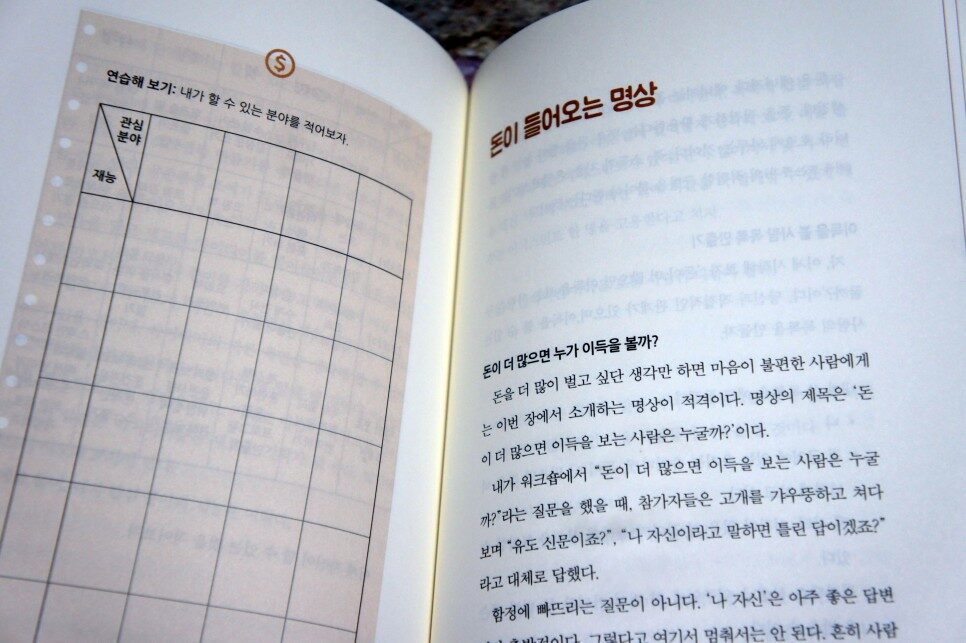 $
연습해 보기: 내가 할 수 있는 분야를 적어보자.
관심
분야
재능
돈이 들어오는 명상
돈이 더 많으면 누가 이득을 볼까?
돈을 더 많이 벌고 싶단 생각만 하면 마음이 불편한 사람에게
는 이번 장에서 소개하는 명상이 적격이다. 명상의 제목은 ‘돈
이 더 많으면 이득을 보는 사람은 누굴까?’이다.
내가 워크숍에서 “돈이 더 많으면 이득을 보는 사람은 누굴
까?”라는 질문을 했을 때, 참가자들은 고개를 갸우뚱하고 쳐다
보며 “유도 신문이죠?”, “나 자신이라고 말하면 틀린 답이겠죠?”
라고 대체로 답했다.
함정에 빠뜨리는 질문이 아니다. ‘나 자신’은 아주 좋은 답변
그렇다고 여기서 멈춰서는 안 된다. 흔히 사람